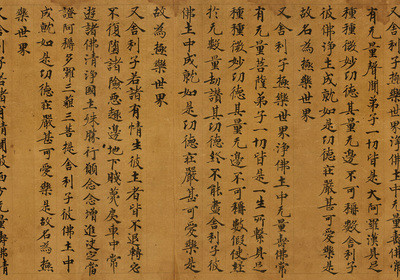 又舍利子極樂世界淨佛土中無量壽佛常
有無量聲聞弟子一切皆是大阿羅漢具足
種種微妙功德其量無邊不可稱數舍利子
彼佛淨土成就如是功德莊嚴甚可愛樂是
故名為極樂世界
又舍利子極樂世界淨佛土中無量壽佛常
有無量菩薩弟子一切皆是一生所繫具足
種種微妙功德其量無邊不可稱數假使經
於無數量劫讚其功德終不能盡舍利子彼
佛土中成就如是功德莊嚴甚可愛樂是
故名為極樂世界
又舍利子若諸有情生彼土者皆不退轉必
不復墮諸險惡趣邊地下賤蔑戾車中常
遊諸佛清淨國土殊勝行願念念增進決定當
證阿耨多羅三藐三菩提舍利子彼佛土中
成就如是功德莊嚴甚可愛樂是故名為
極樂世界
又舍利子若諸有情聞彼西方無量壽佛清